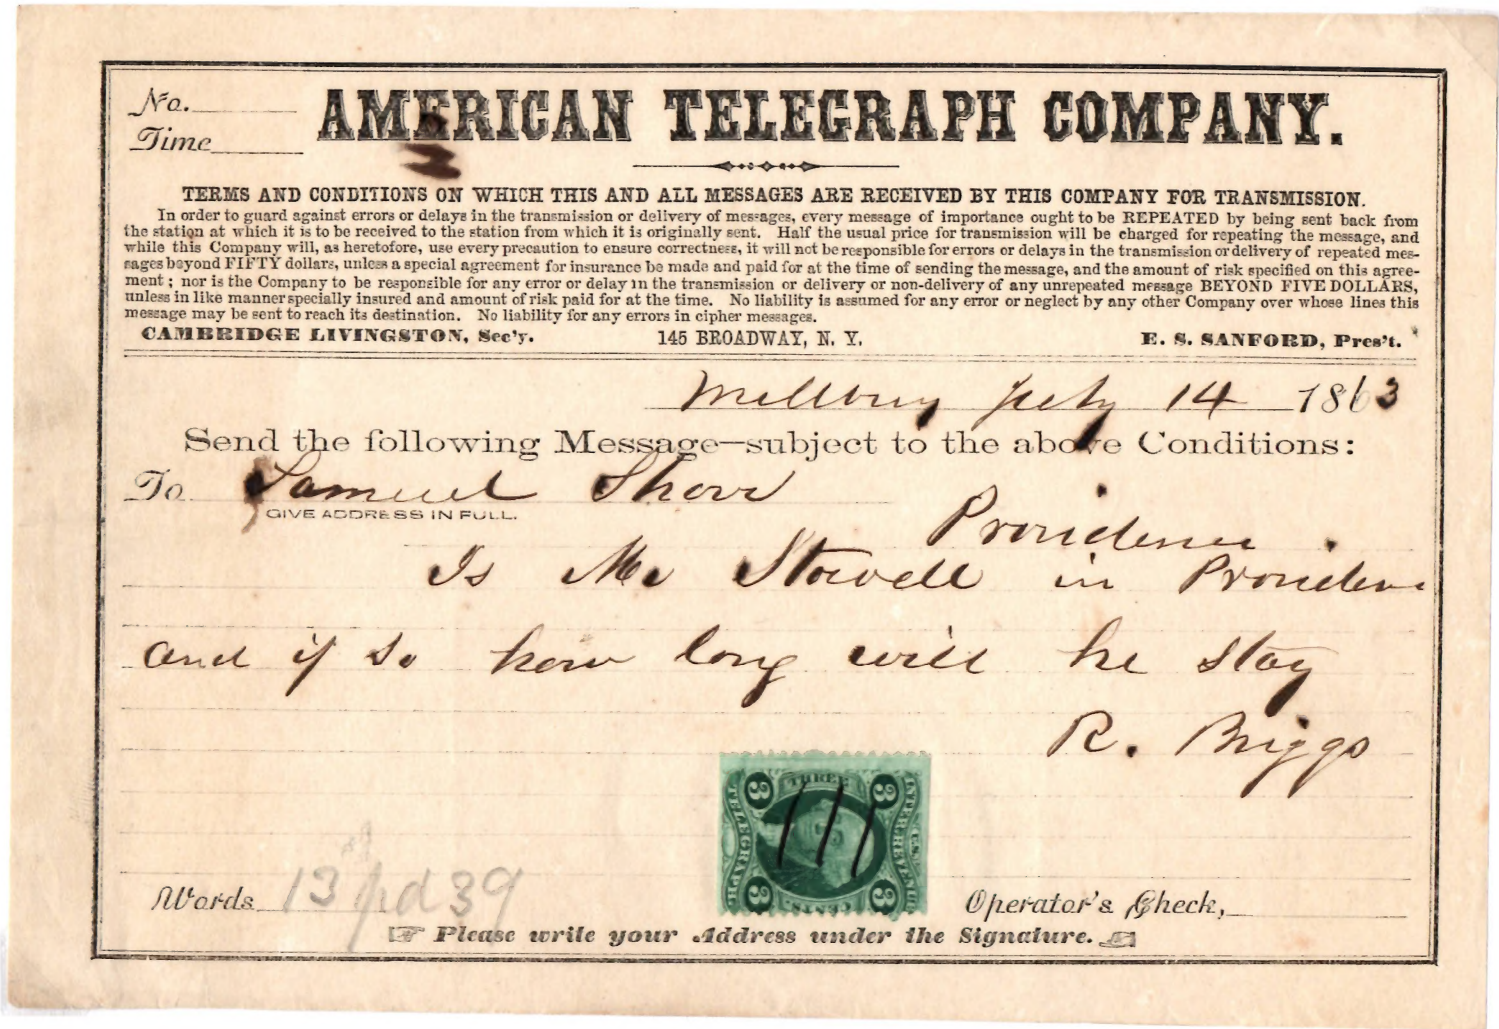 No.
Time
AMERICAN TELEGRAPH COMPANY.
TERMS AND CONDITIONS ON WHICH THIS AND ALL MESSAGES ARE RECEIVED BY THIS COMPANY FOR TRANSMISSION.
In order to guard against errors or delays in the transmission or delivery of messages, every message of importance ought to be REPEATED by being sent back from
the station at which it is to be received to the station from which it is originally sent. Half the usual price for transmission will be charged for repeating the message, and
while this Company will, as heretofore, use every precaution to ensure correctness, it will not be responsible for errors or delays in the transmission or delivery of repeated mes-
sages beyond FIFTY dollars, unless a special agreement for insurance be made and paid for at the time of sending the message, and the amount of risk specified on this agree-
ment; nor is the Company to be responsible for any error or delay in the transmission or delivery or non-delivery of any unrepeated message BEYOND FIVE DOLLARS,
unless in like manner specially insured and amount of risk paid for at the time. No liability is assumed for any error or neglect by any other Company over whose lines this
message may be sent to reach its destination. No liability for any errors in cipher messages.
CAMBRIDGE LIVINGSTON, Sec'y. 145 BROADWAY, N. Y. E. S. SANFORD, Pres't.
Millbury July 14 1863
Send the following Message—subject to the above Conditions:
To Samuel Shove
GIVE ADDRESS IN FULL.
Providence
Is Mr Stowell in Providence
and if so how long will he stay
R. Briggs
3 THREE 3
TELEGRAPH INTER. REVENUE U.S.
3 CENTS. 3
Words 13 pd 39 Operator's Check,
Please write your Address under the Signature.